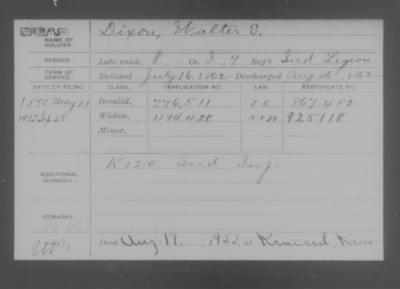 NAME OF SOLDIER: Dixon, Walter S.
SERVICE: Late rank, P Co. I, 9 Reg't Ind Legion
TERM OF SERVICE: Enlisted July 16, 1862 Discharged Aug 1862
DATE OF FILING. CLASS. APPLICATION NO. LAW. CERTIFICATE NO.
1890 May 21 Invalid, 776,511 867482
1922 Sep 28 Widow, 1194420 925118
Minor,
ADDITIONAL SERVICES: K 120 Ind Inf.
REMARKS:
Died Aug. 17, 1922, at Kans